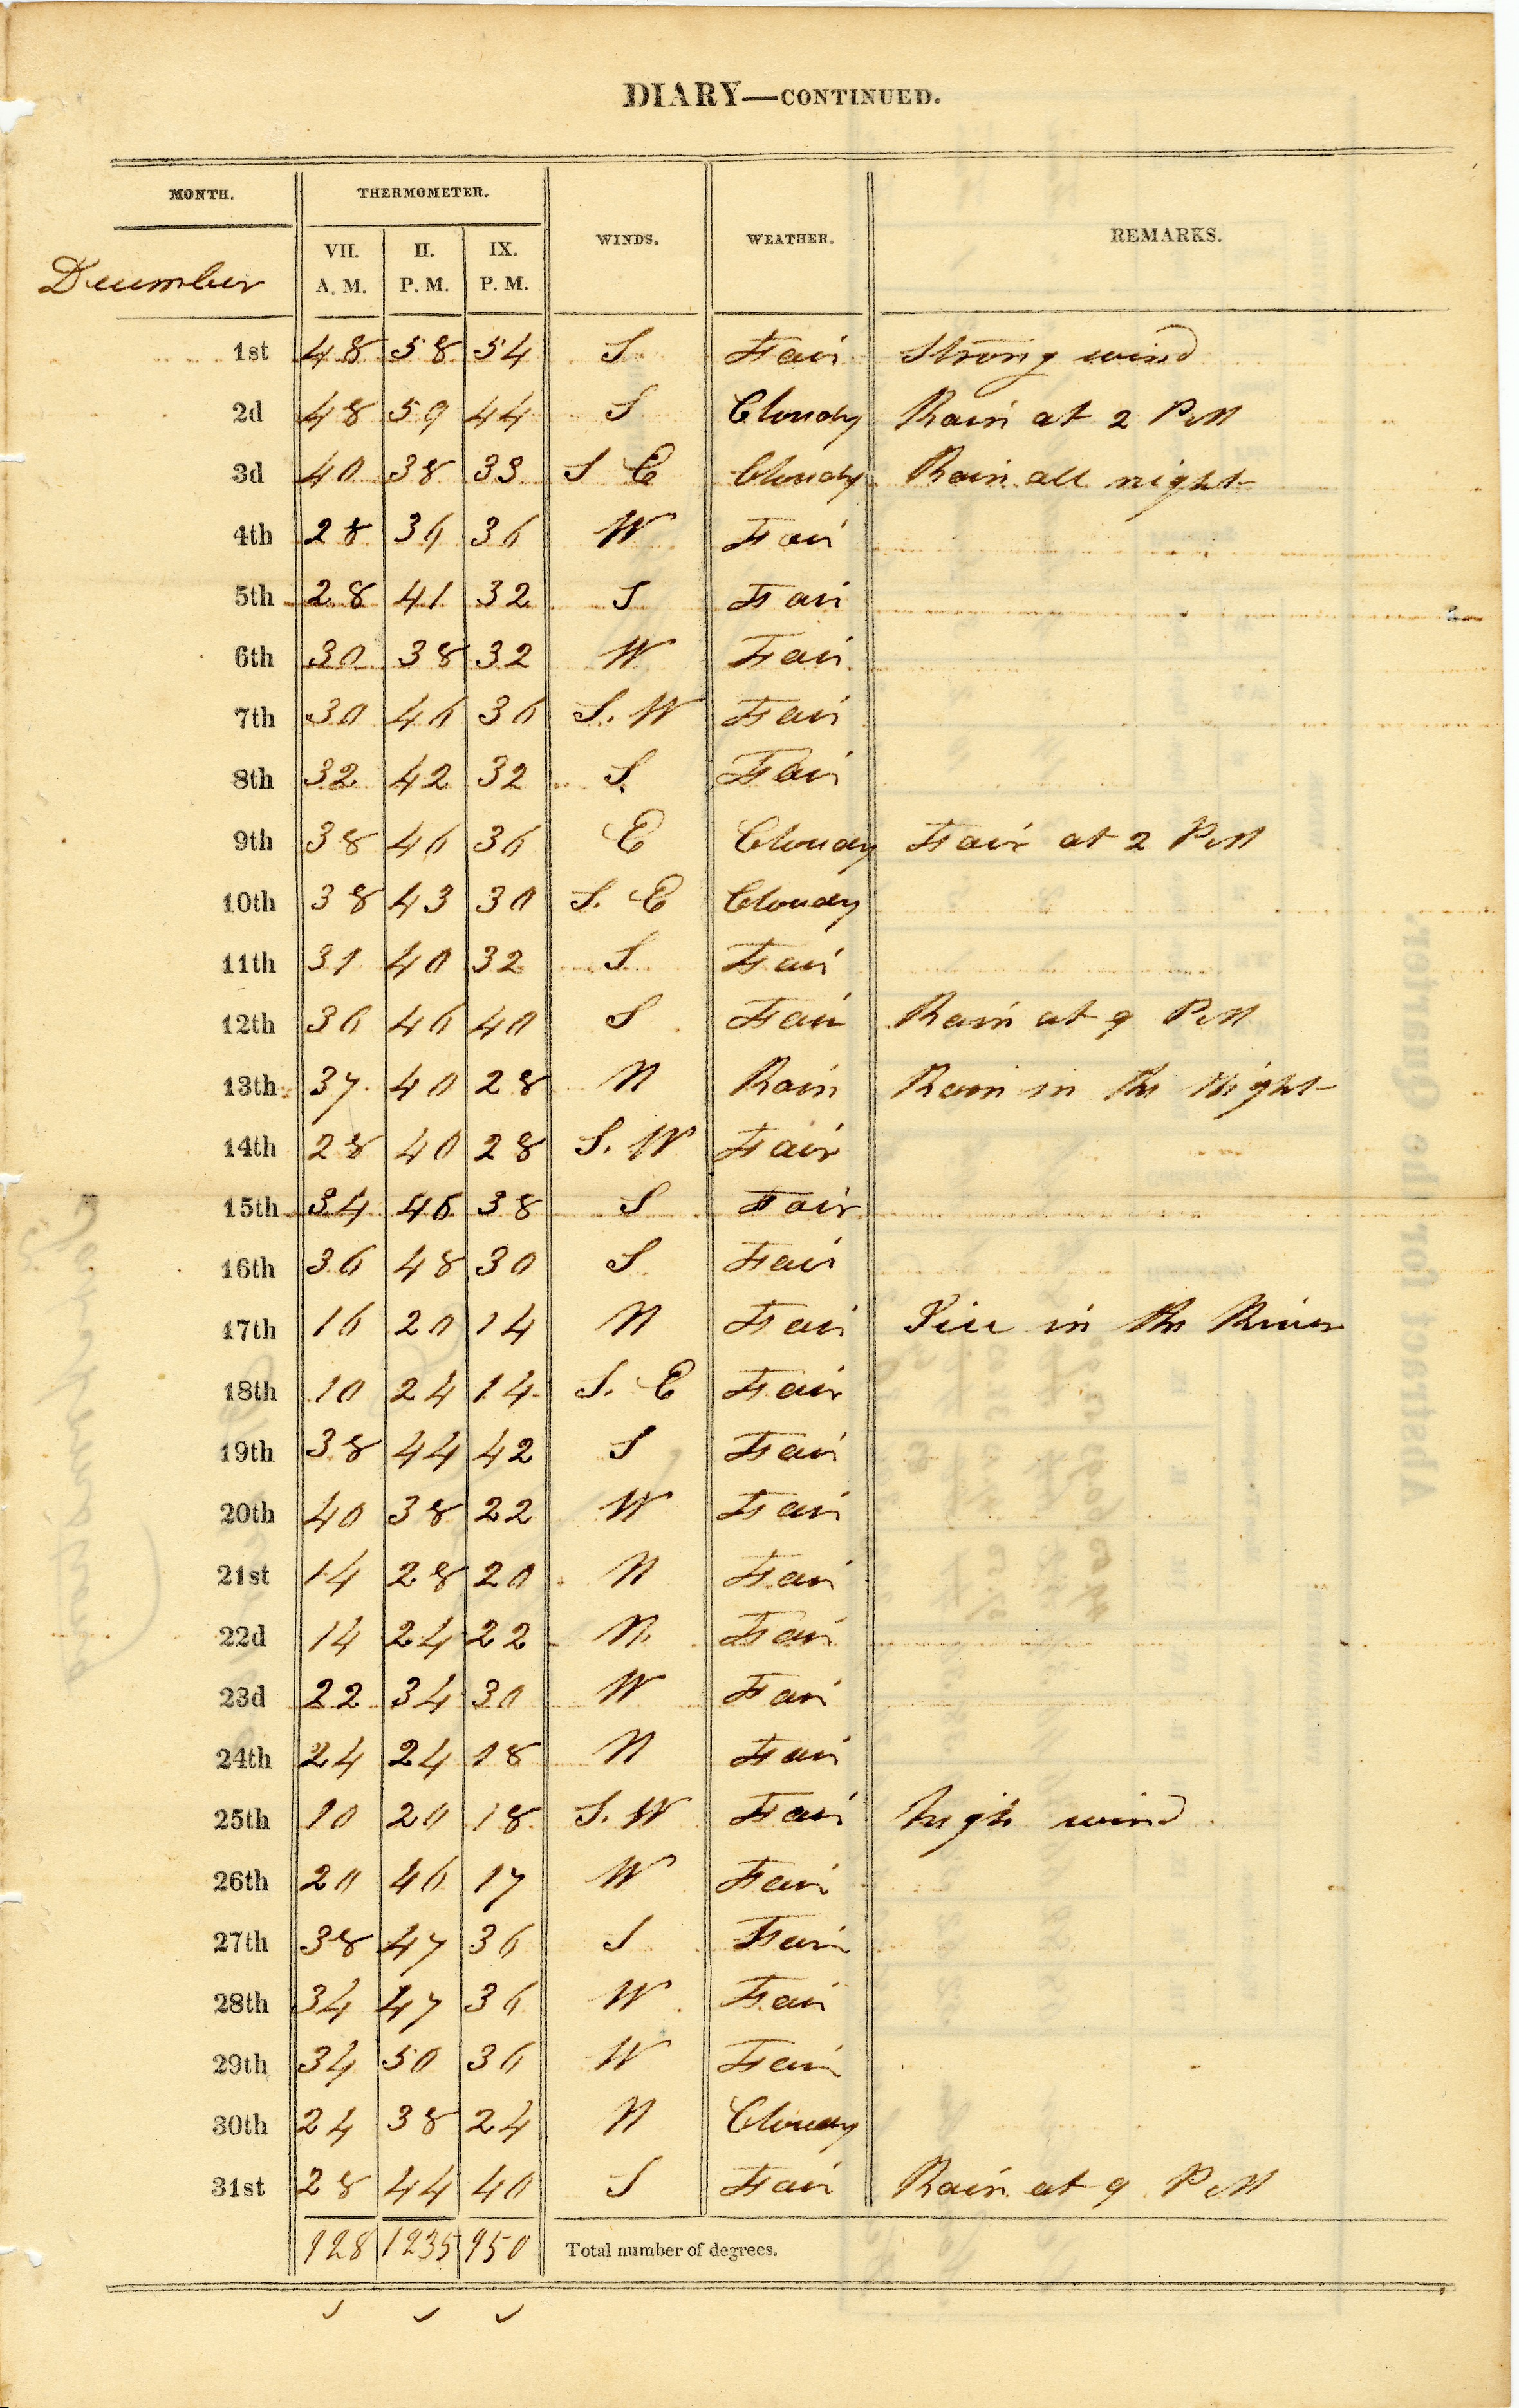 DIARY—CONTINUED.
MONTH. THERMOMETER. WINDS. WEATHER. REMARKS.
December VII. A.M. II. P.M. IX. P.M.
1st 48 58 54 S Fair Strong wind
2d 48 59 44 S Cloudy Rain at 2 PM
3d 40 38 33 S E Cloudy Rain all night
4th 28 36 36 W Fair
5th 28 41 32 S Fair
6th 30 38 32 W Fair
7th 30 46 36 S. W Fair
8th 32 42 32 S. Fair
9th 38 46 36 E Cloudy Fair at 2 PM
10th 38 43 30 S. E Cloudy
11th 31 40 32 S Fair
12th 36 46 40 S Fair Rain at 9 PM
13th 37 40 28 N Rain Rain in the Night
14th 28 40 28 S. W Fair
15th 34 46 38 S Fair
16th 36 48 30 S Fair
17th 16 20 14 N Fair in the River
18th 10 24 14 S. E Fair
19th 38 44 42 S Fair
20th 40 38 22 W Fair
21st 14 28 20 N Fair
22d 14 24 22 N. Fair
23d 22 34 30 W Fair
24th 24 24 18 N Fair
25th 10 20 18 S. W Fair high wind
26th 20 46 17 W Fair
27th 38 47 36 S Fair
28th 34 47 36 W Fair
29th 34 50 36 W Fair
30th 24 38 24 N Cloudy
31st 28 44 40 S Fair Rain at 9 PM
928 1235 950 Total number of degrees.